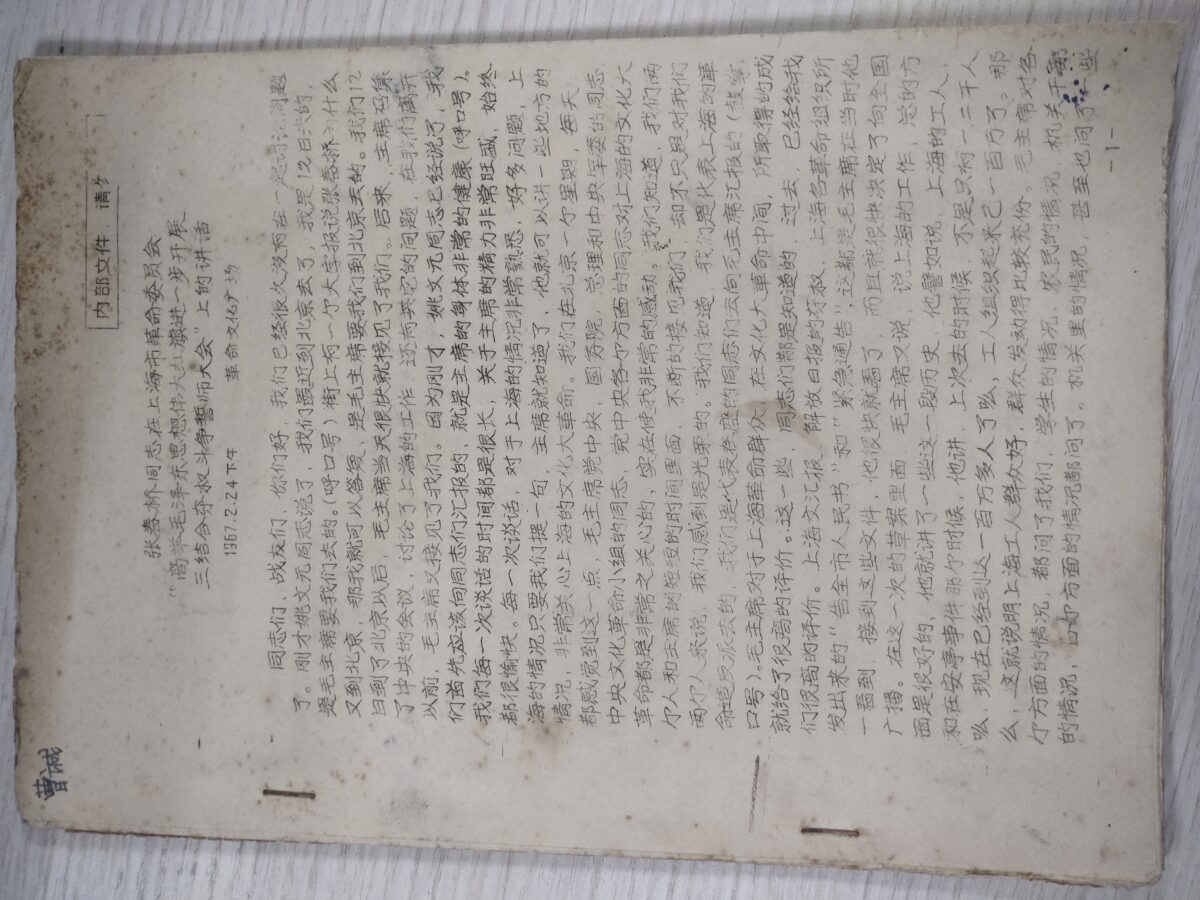 曹诚
内部文件，请勿
张春桥同志在上海市革命委员会
“高举毛泽东思想伟大红旗进一步开展
三结合夺权斗争誓师大会”上的讲话
1967.2.24下午 革命文化广场
同志们、战友们，你们好，我们已经很久没有在一起讨论问题
了。刚才姚文元同志说了，我们最近到北京去了，我是12日去的，
是毛主席要我们去的。（呼口号）街上有一个大字报说张春桥为什么
又到北京，那我就可以答复，是毛主席要我们到北京去的。我们12
日到了北京以后，毛主席当天很快就接见了我们。后来，主席召集
了中央的会议，讨论了上海的工作，还有其它的问题，在我们离开
以前，毛主席又接见了我们。因为刚才，姚文元同志已经说了，我
们首先应该向同志们汇报的，就是主席的身体非常的健康（呼口号）。
我们每一次谈话的时间都是很长，关于主席的精力非常旺盛，始终
都很愉快。每一次谈话，对于上海的情况非常熟悉，好多问题，上
海的情况只要我们提一句，主席就知道了，他就可以讲一些地方的
情况，非常关心上海的文化大革命。我们在北京一个星期，每天
都感觉到这一点，毛主席党中央，国务院，总理和中央军委的同志，
中央文化革命小组的同志，党中央各个方面的同志对上海的文化大
革命都是非常之关心的，实在使我非常的感动。我们知道，我们两
个人和主席的短短的时间里面，不断的接见我们，却不只是对我们
两个人来说，我们感到是光荣的。我们知道，我们是代表上海的革
命造反派去的，我们是代表在座的同志们去向毛主席汇报的（鼓掌，
口号）。毛主席对于上海革命群众，在文化大革命中间，所取得的成
就给了很高的评价。这一些，同志们都是知道的，过去，已经给我
们很高的评价。上海文汇报，解放日报的夺权，上海各革命组织所
发出来的“告全市人民书”和“紧急通告”，这都是毛主席在当时他
一看到，接到这些文件，他很快就看了，而且就很快决定了向全国
广播。在这一次的草案里面，毛主席又说，说上海的工作，总的方
面是很好的，他就讲了一些这一段历史，他譬如说，上海的工人，
和在安亭事件那个时候，他讲，上次去的时候，不是只有一、二千人
吆，现在已经到达一百万多人了吆，工人组织起来已一百万了。那
么，这就说明上海工人群众好，群众发动得比较充份。毛主席对各
个方面的情况，都问了我们，学生的情况，农民的情况，机关干部
的情况，各个方面的情况都问了。机关里的情况，甚至也问了一些
-1-